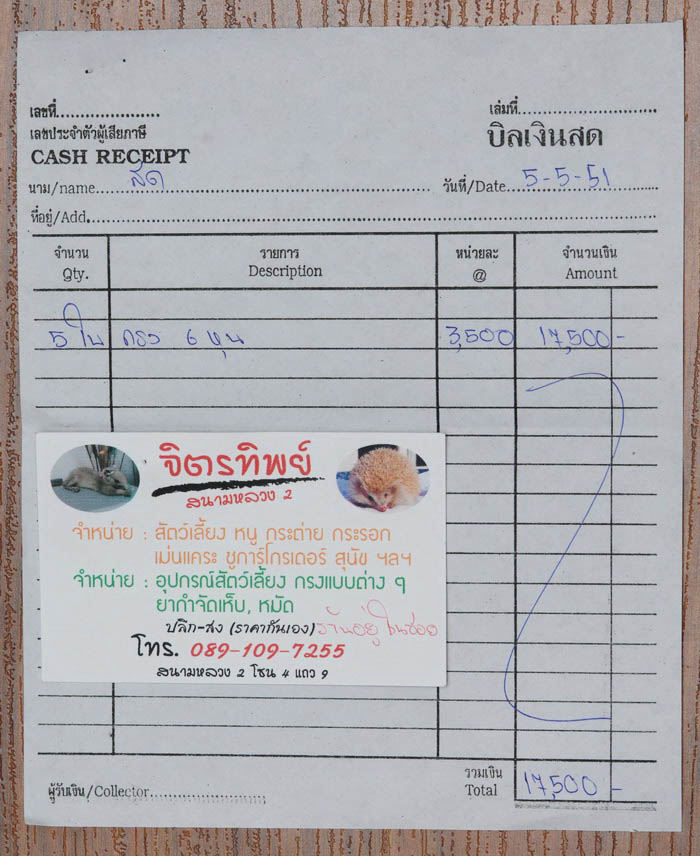 เลขที่.................... เล่มที่............................
เลขประจำตัวผู้เสียภาษี บิลเงินสด
CASH RECEIPT
นาม/name.......สด........ วันที่/Date...5-5-51......
ที่อยู่/Add.........................................
จำนวน รายการ หน่วยละ จำนวนเงิน
Qty. Description @ Amount
5 ใบ กรง 6 หุน 3,500 17,500 -
จิตรทิพย์
สนามหลวง 2
จำหน่าย : สัตว์เลี้ยง หนู กระต่าย กระรอก
เม่นแคระ ชูการ์ไกรเดอร์ สุนัข ฯลฯ
จำหน่าย : อุปกรณ์สัตว์เลี้ยง กรงแบบต่าง ๆ
ยากำจัดเห็บ, หมัด
ปลีก-ส่ง (ราคากันเอง) ร้านอยู่ในซอย
โทร. 089-109-7255
สนามหลวง 2 โซน 4 แถว 9
รวมเงิน
ผู้รับเงิน/Collector............................ Total 17,500 -